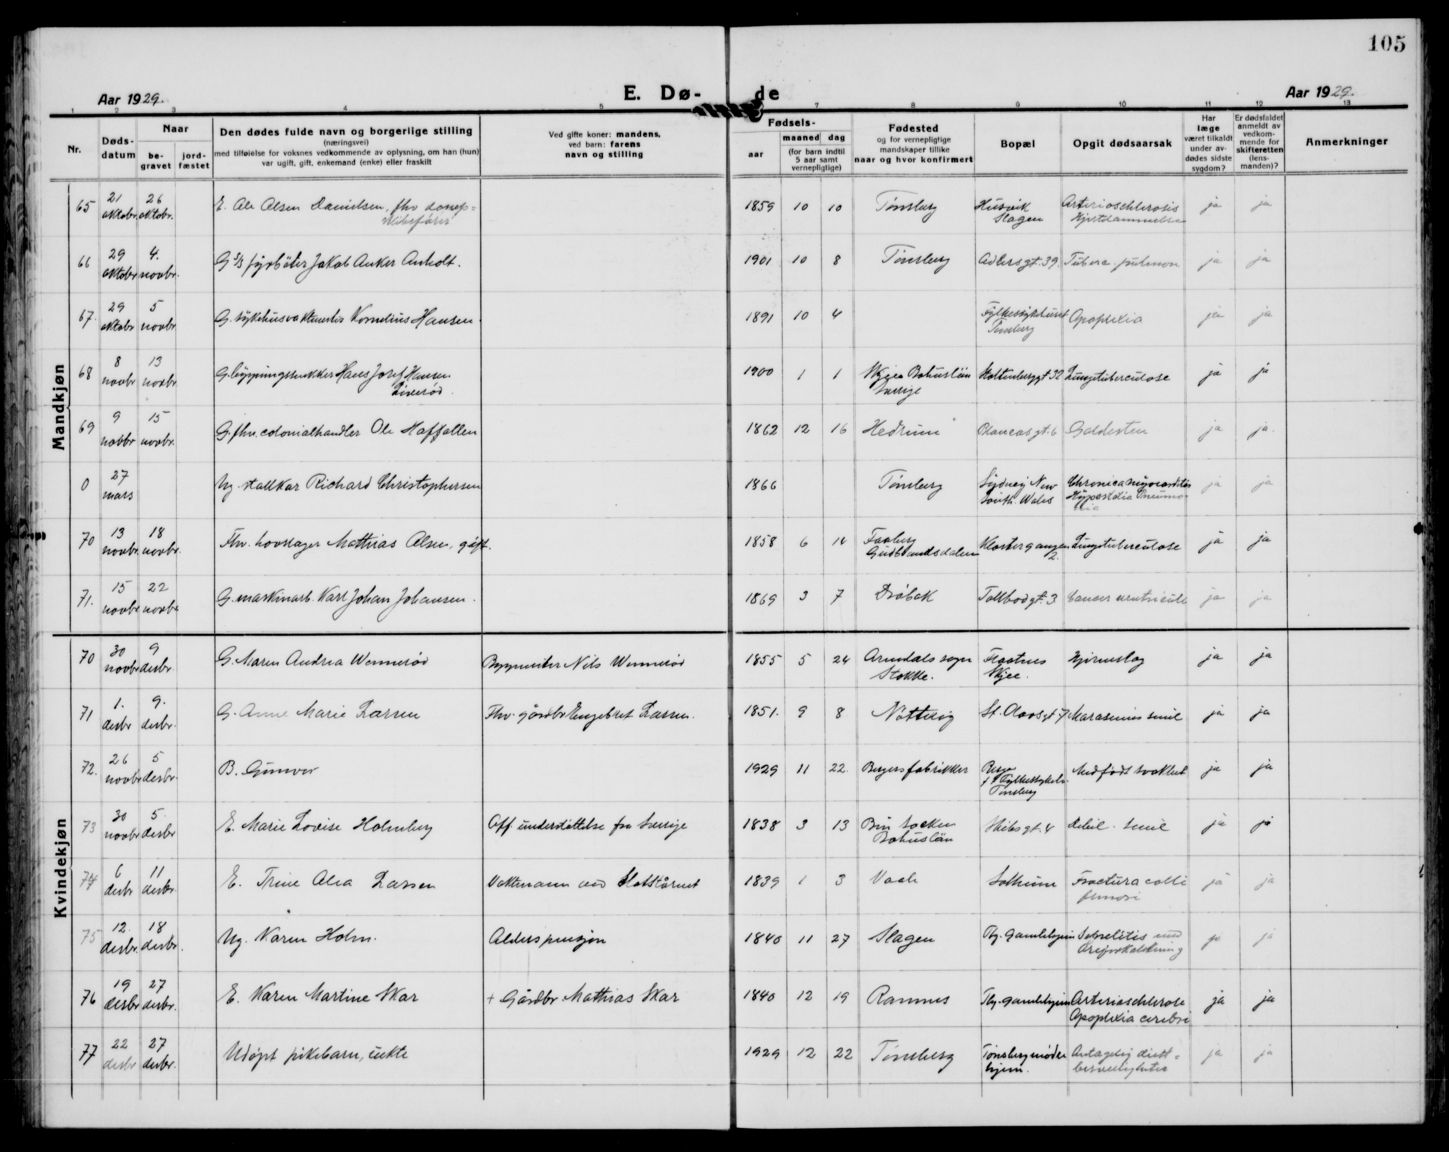 105
Aar 1929.
E. Dø-
de
Aar 1929.
1 2 3 4 5 7 8 9 10 11 12 13
Nr.
Døds-
datum
Naar
be-
gravet
jord-
fæstet
Den dødes fulde navn og borgerlige stilling
(næringsvei)
med tilføielse for voksnes vedkommende av oplysning, om han (hun)
var ugift, gift, enkemand (enke) eller fraskilt
Ved gifte koner: mandens,
ved barn: farens
navn og stilling
Fødsels-
aar
maaned dag
(for barn indtil
5 aar samt
vernepligtige)
Fødested
og for vernepligtige
mandskaper tillike
naar og hvor konfirmert
Bopæl
Opgit dødsaarsak
Har
læge
været tilkaldt
under av-
dødes sidste
sygdom?
Er dødsfaldet
anmeldt av
vedkom-
mende for
skifteretten
(lens-
manden)?
Anmerkninger
Mandkjøn
65 21 oktobr. 26 oktobr. E. Ole Olsen Danielsen, fhv. 1859 10 10 Tønsberg Husvik Slagen Arterioschlerosis ja ja
66 29 oktobr 4. novbr. G. fyrbøter Jakob Anker Anholt. 1901 10 8 Tønsberg Adlersgt. 39. Tuberc. pulmon ja ja
67 29 oktobr 5 novbr. G. Kornelius Hansen. 1891 10 4 Fylkessykehuset Tønsberg Apoplexia ja ja
68 8 novbr 13 novbr. G. Hans Josef Hansen 1900 1 1 Skjee Bohuslän Sverige Stoltenberggt 32 Lungetuberculose ja ja
69 9 novbr 15 novbr. G. fhv. colonialhandler Ole Haffallen 1862 12 16 Hedrum gt. 6 Galdesten ja ja.
0 27 mars Ug. Richard Christophersen 1866 Tønsberg Sydney New South Wales Chronica myocarditis ja ja
70 13 novbr 18 novbr. Fhv. hovslager Mathias Olsen, gift. 1858 6 Faaberg Gudbrandsdalen Klostergangen 2. Lungetuberculose ja ja
71. 15 novbr 22 novbr G. maskinarb. Karl Johan Johansen. 1869 3 7 Drøbak Tollbodgt. 3 Cancer ventriculi ja ja
Kvindekjøn
70 30 novbr 9 desbr G. Maren Andrea Wennerød Byggmester Nils Wennerød 1855 5 24 Arendals sogn Stokke. Skjee. Hjerneslag ja ja
71 1. desbr 9. desbr. G. Anne Marie Larsen Fhv. gårdbr Engebret Larsen. 1851. 9 8 Nøtterøy St. Olavsgt. 7 Marasmus senil ja ja
72. 26 novbr 5 desbr. B. Gunvor 1929 11 22 Bergersfabrikker Berger Fylkessykeh. Tønsberg Medfødt svakhet ja ja
73 30 novbr 5. desbr E. Marie Lovise Holmberg Off. understøttelse fra Sverige 1838 3 13 Bohuslän gt. 4 Debil. senil ja ja
74 6 desbr 11 desbr E. Trine Alea Larsen Vaktmann ved Slottstårnet 1839 1 3 Vaale Solheim Fractura colli femori ja ja
75 12. desbr. 18 desbr. Ug. Karen Holm. Alderspensjon 1840 11 27 Slagen Tbg. gamlehjem ja ja
76 19 desbr 27 desbr. E. Karen Martine Skar + Gårdbr Mathias Skar 1840 12 19 Ramnes Tbg. gamlehjem Arterioschlerose Apoplexia cerebri ja ja
77 22 desbr 27 desbr. Udøpt pikebarn, ekte 1929 12 22 Tønsberg Tønsberg mødrehjem. ja ja